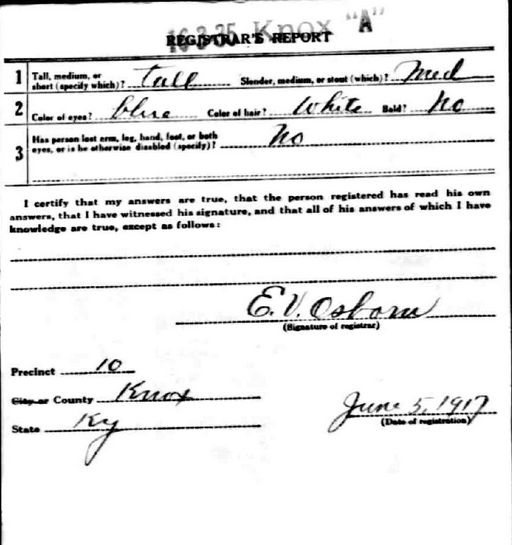 16-3-35 Knox "A"
REGISTRAR'S REPORT
1 Tall, medium, or short (specify which)? Tall Slender, medium, or stout (which)? Med
2 Color of eyes? blue Color of hair? White Bald? No
3 Has person lost arm, leg, hand, foot, or both eyes, or is he otherwise disabled (specify)? No
I certify that my answers are true, that the person registered has read his own
answers, that I have witnessed his signature, and that all of his answers of which I have
knowledge are true, except as follows:
E. V. Osborn
(Signature of registrar)
Precinct 10
City or County Knox
State Ky
June 5, 1917
(Date of registration)